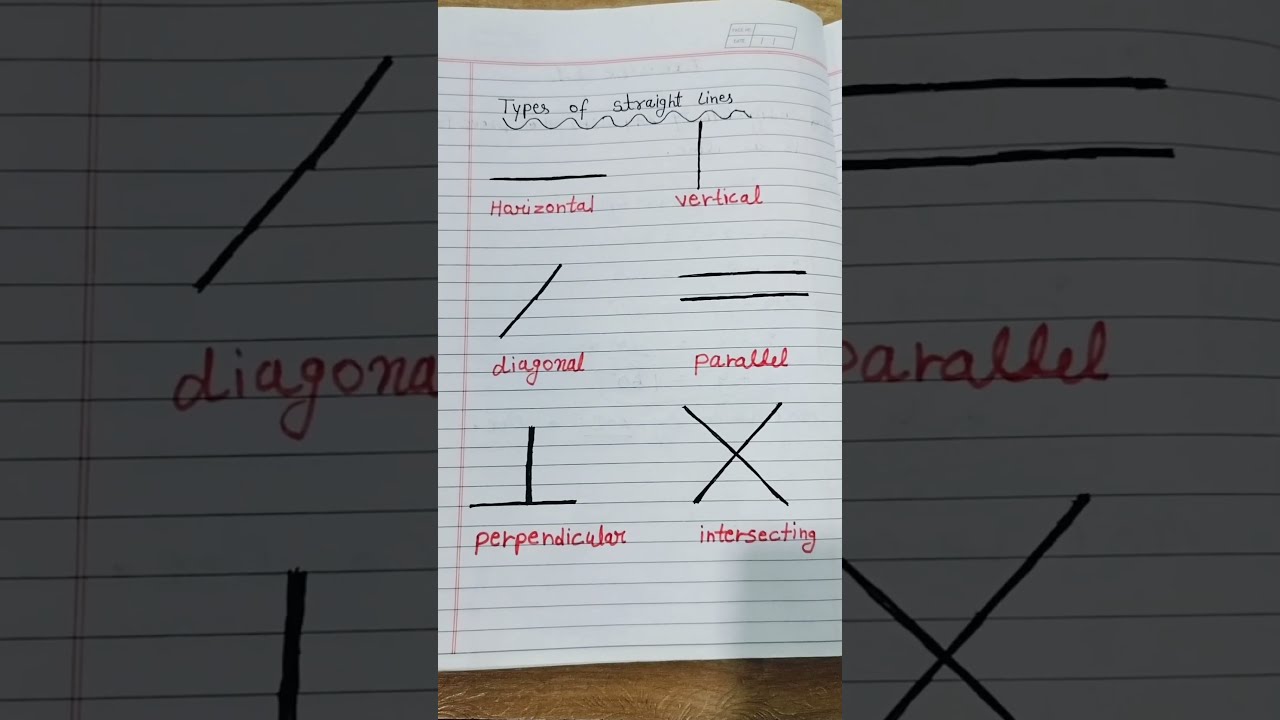 Types of straight lines
Harizontal
vertical
diagonal
parallel
perpendicular
intersecting
diagona
parallel